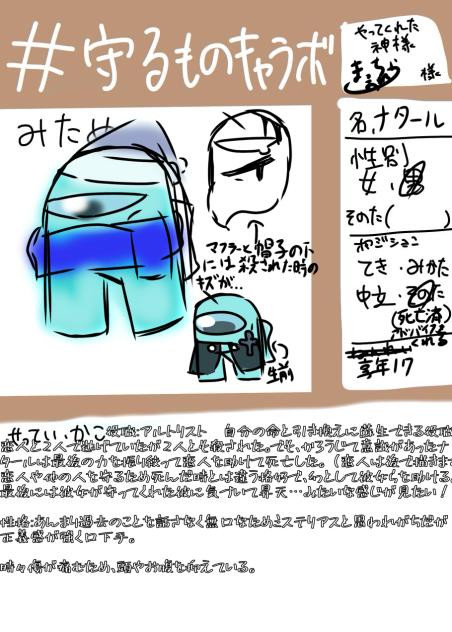 #守るものキャラボ
やってくれた
神様
様
みため
マフラーと帽子の下
には殺された時の
キズが…
生前
名、ナタール
性別
女・男
そのた( )
ポジション
てき・みかた
中立・そのた
(死亡済)
アドバイスを
くれる
享年17
せってい、かこ 役職:アルトリスト 自分の命と引き換えに蘇生できる役職
恋人と2人で逃げていたが2人とも殺された。でも、かろうじて意識があったナ
タールは最後の力を振り絞って恋人を助けて死亡した。(恋人は後で描きます
恋人や他の人を守るため死んだ時とは違う格好で、幻として彼女らを助ける。
最後には彼女が守ってくれた彼に気づいて昇天…みたいな感じが見たい!
性格:あんまり過去のことを話さなく無口なためミステリアスと思われがちだが
正義感が強く口下手。
時々傷が痛むため、頭やお腹を抑えている。